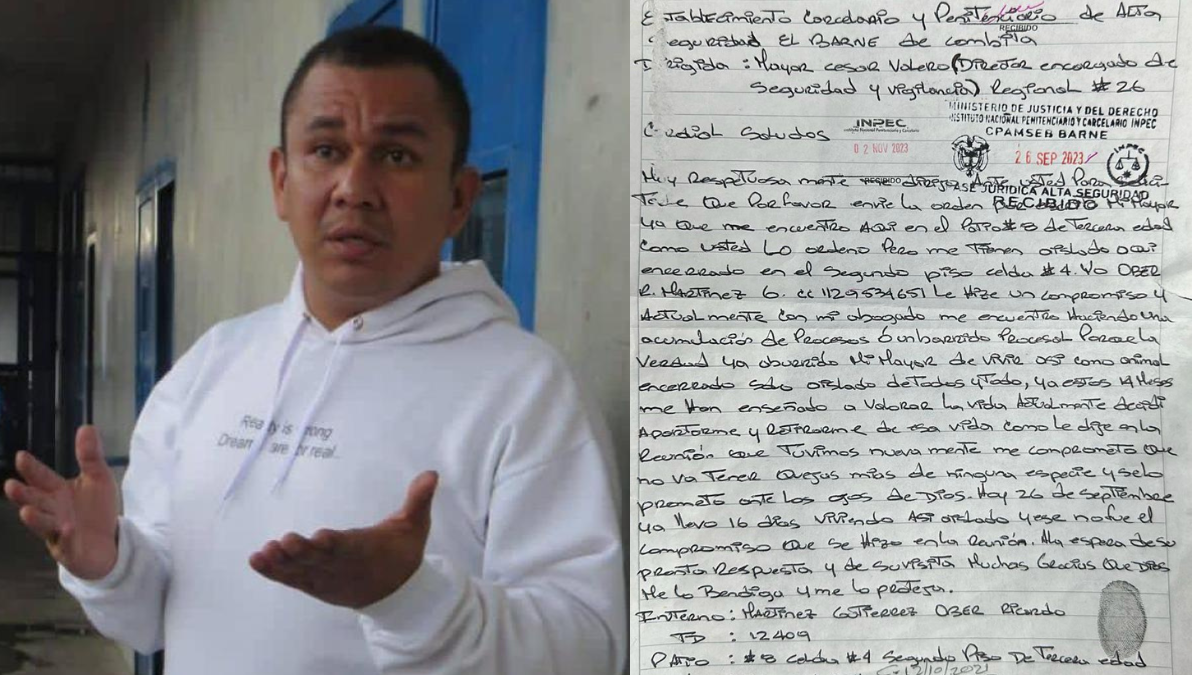 Rea y is rong
Dream are or real...
Establecimiento Carcelario y Penitenciario de Alta
RECIBIDO
Seguridad EL BARNE de Combita
Dirigida : Mayor cesar Valero (Director encargado de
Seguridad y vigilancia) Regional # 26
MINISTERIO DE JUSTICIA Y DEL DERECHO
INSTITUTO NACIONAL PENITENCIARIO Y CARCELARIO INPEC
CPAMSEB BARNE
INPEC
Instituto Nacional Penitenciario y Carcelario
Cordial Saludos
02 NOV 2023
26 SEP 2023
INPEC
Muy Respetuosa mente
RECIBIDO
Ante usted Para
JURIDICA ALTA SEGURIDAD
RECIBIDO
Que Por favor envie la orden Mi Mayor
ya que me encuentro AQui en el Patio #8 de Tercera edad
Como usted Lo ordeno Pero me Tienen aislado aqui
encerrado en el Segundo piso celda #4. Yo OBER
R. MARTINEZ G. cc 1129534651 Le Hize un compromiso y
Actual mente con mi abogado me encuentro Haciendo una
acumulación de Procesos ó un barrido Procesal Porque La
Verdad ya aburrido Mi Mayor de vivir asi como animal
encerrado solo aislado de Todos y Todo, ya estos 14 Meses
me Han enseñado a valorar La vida Actualmente decidi
Apartarme y Retirarme de esa vida como Le dije en La
Reunión que Tuvimos nueva mente me comprometo que
no va Tener Quejas mias de ninguna especie y se lo
prometo ante Los ojos de Dios. Hoy 26 de septiembre
ya llevo 16 dias viviendo Asi aislado y ese no fue el
compromiso que se Hizo en La Reunión. Ha espera de su
pronta Respuesta y de su visita Muchas Gracias Que DIOS
Me Lo Bendiga y me lo proteja.
Interno : MARTINEZ GUTIERREZ OBER RICARDO
TD : 12409
PATIO : #8 celda #4 Segundo Piso De Tercera edad
12/10/2021